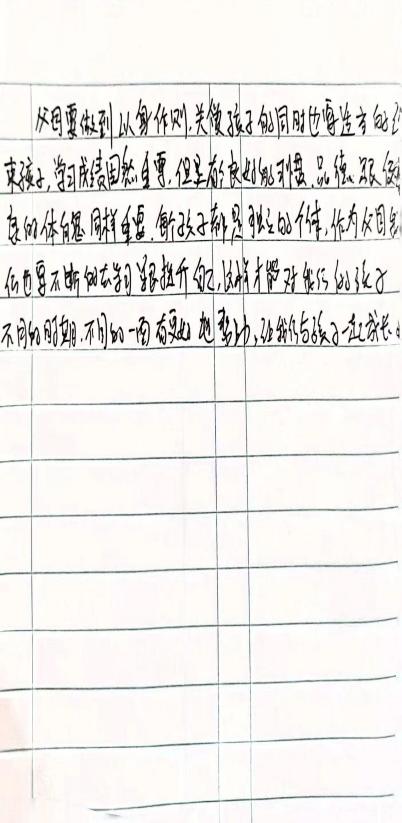 父母要做到以身作则.关爱孩子的同时也要适当的
束孩子,学习成绩固然重要,但是有个良好的习惯、品德、跟
良的体魄同样重要.每个孩子都是独立的个体,作为父母
们也要不断的去学习跟提升自己,这样才能对我们的孩子
不同的时期.不同的一面有更好的帮助,让我们与孩子一起成长.